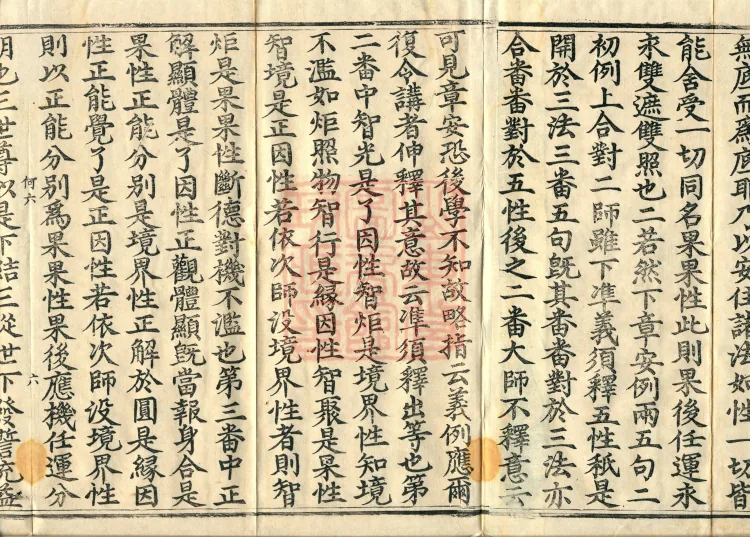 無座而為座耶乃以安住諸法如性一切皆
能舍受一切同名果果性此則果後任運永
永雙遮雙照也二若然下章安例兩五句二
初例上合對二師雖下准義須釋五性秖是
開於三法三番五句旣其番番對於三法亦
合番番對於五性後之二番大師不釋意云
可見章安恐後學不知故略指云義例應爾
復令講者伸釋其意故云准須釋出等也第
二番中智光是了因性智炬是境界性知境
不濫如炬照物智行是緣因性智聚是果性
智境是正因性若依次師没境界性者則智
炬是果果性斷德對機不濫也第三番中正
解顯體是了因性正觀體顯旣當報身合是
果性正能分別是境界性正解於圓是緣因
性正能覺了是正因性若依次師没境界性
則以正能分別爲果果性果後應機任運分
何六
六
明也三世尊似是下結三從世下發誓流益